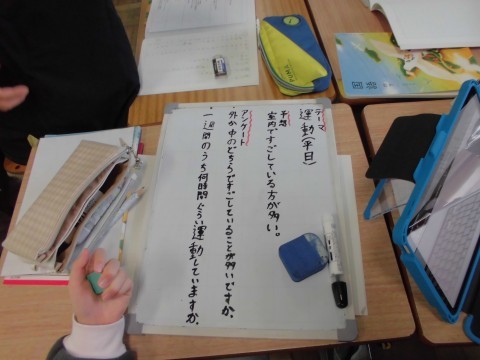 テーマ
運動(平日)
予想
室内ですごしている方が多い。
アンケート
・外か中のどちらですごしていることが多いですか。
・一週間のうち何時間ぐらい運動していますか。